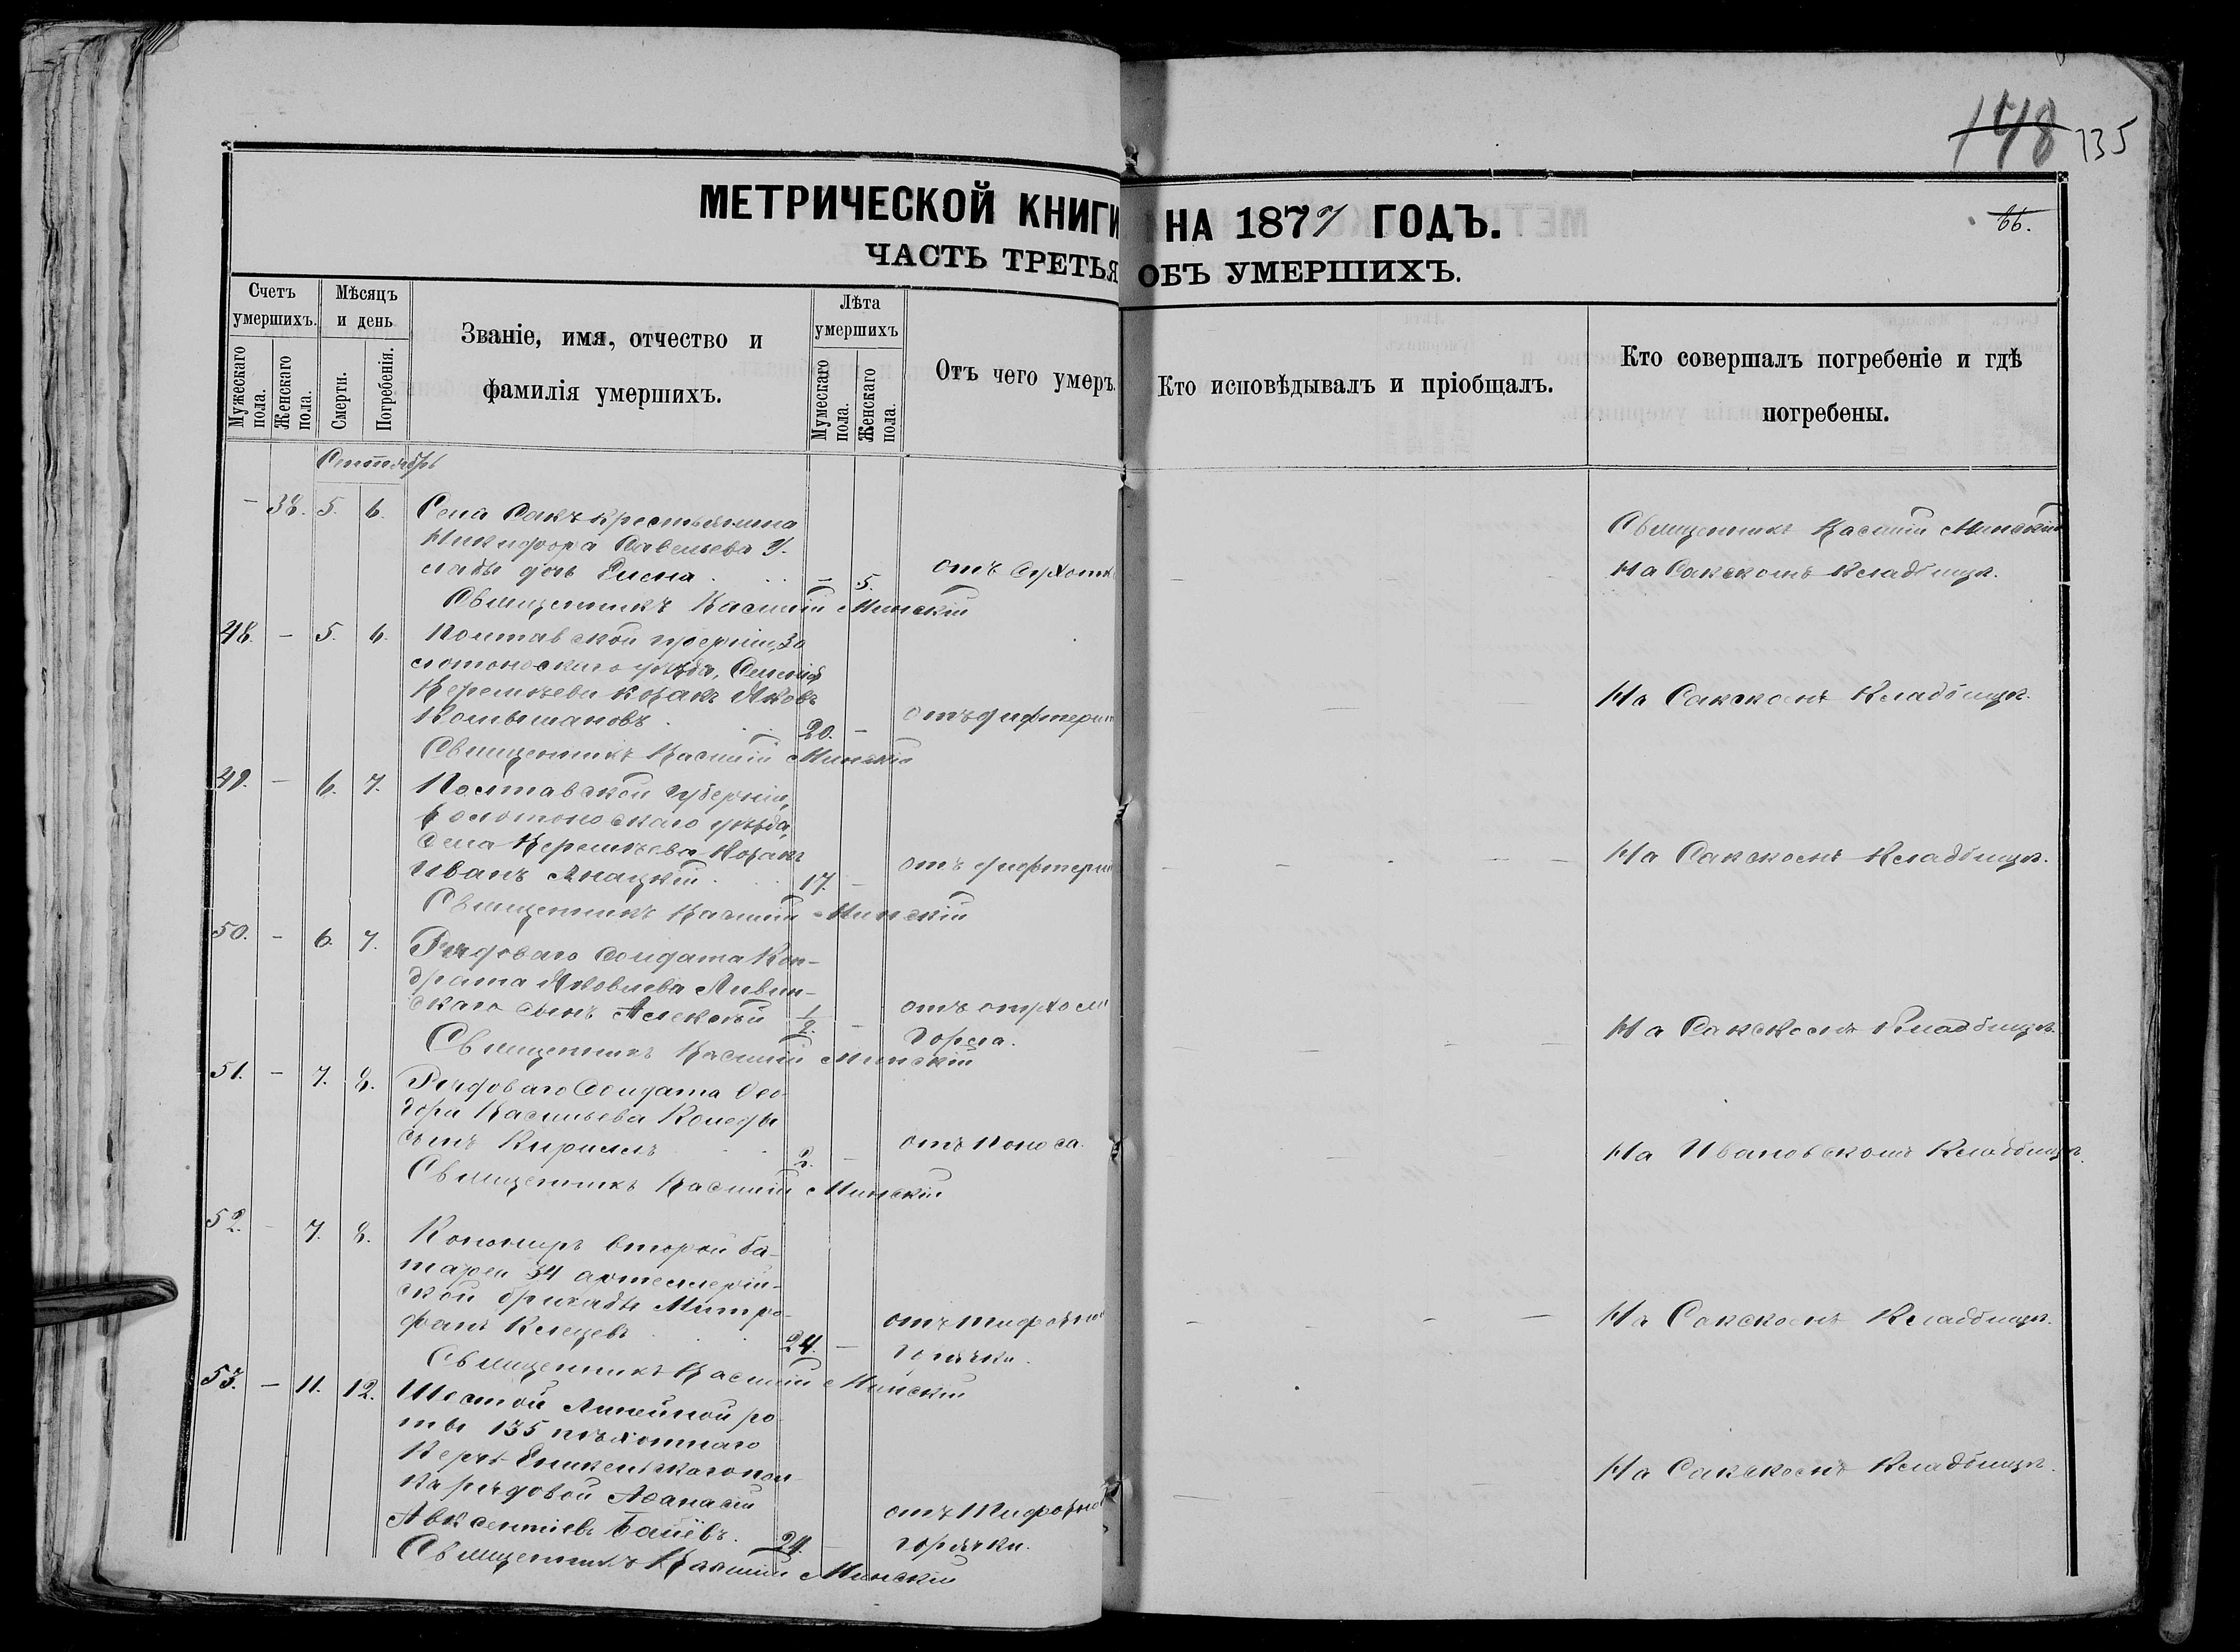 148 135
МЕТРИЧЕСКОЙ КНИГИ НА 1877 ГОДЪ.
66.
ЧАСТЬ ТРЕТЬЯ ОБЪ УМЕРШИХЪ.
Счетъ умершихъ.
Мужескаго пола.
Женскаго пола.
Мѣсяцъ и день
Смерти.
Погребенія.
Званіе, имя, отчество и
фамилія умершихъ.
Лѣта умершихъ
Мумескаго пола.
Женскаго пола.
Отъ чего умеръ.
Кто исповѣдывалъ и пріобщалъ.
Кто совершалъ погребеніе и гдѣ
погребены.
Сентябрь
— 38. 5. 6. Села Сакъ крестьянина
Никифора Савельева
дочь — 5. отъ
Священникъ Василій Минскій
На Сакскомъ Кладбищѣ.
Священникъ Василій Минскій
48. — 5. 6. Полтавской губерніи, Зо
лотоноскаго уѣзда,
козакъ Яковъ
20. — отъ дифтерит
На Сакскомъ Кладбищѣ.
Священникъ Василій Минскій
49. — 6. 7. Полтавской губерніи,
Золотоноскаго уѣзда,
Села Козакъ
Иванъ 17. — отъ дифтерит
На Сакскомъ Кладбищѣ.
Священникъ Василій Минскій
50. — 6. 7. Рядоваго Солдата Кон-
драта Яковлева Ливин-
скаго сынъ Алексѣй 1/2. — отъ
горла.
На Сакскомъ Кладбищѣ.
Священникъ Василій Минскій
51. — 7. 8. Рядоваго Солдата Ѳео
дора Васильева
сынъ Кириллъ 2. — отъ поноса.
На Ивановскомъ Кладбищѣ.
Священникъ Василій Минскій
52. — 7. 8. второй ба-
тареи 34 артеллерій-
ской бригады Митро-
фанъ 24. — отъ тифозной
горячки.
На Сакскомъ Кладбищѣ.
Священникъ Василій Минскій
53. — 11. 12. Шестой Линейной ро
ты 135 пѣхотнаго
Керчь Еникельскаго пол
ка рядовой Аѳанасій
Авксентіевъ 24. — отъ Тифозной
горячки.
На Сакскомъ Кладбищѣ.
Священникъ Василій Минскій